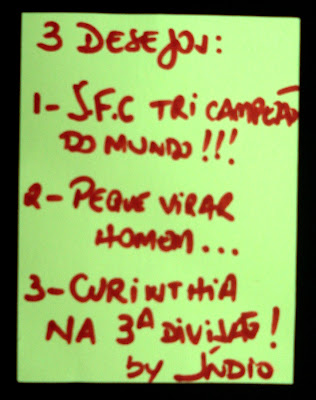 3 DESEJOS:
1- S.F.C TRI CAMPEÃO
DO MUNDO!!!
2- PEQUE VIRAR
HOMEM...
3- CURINTHIA
NA 3ª DIVISÃO!
by ÍNDIO